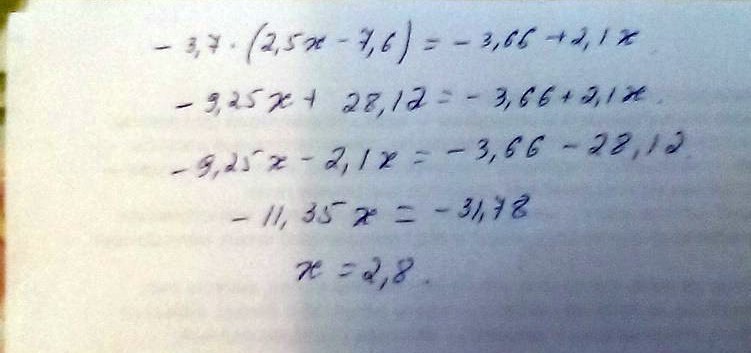 - 3,7 · (2,5x - 7,6) = - 3,66 + 2,1x
- 9,25x + 28,12 = - 3,66 + 2,1x.
- 9,25x - 2,1x = - 3,66 - 28,12.
- 11,35x = - 31,78
x = 2,8.